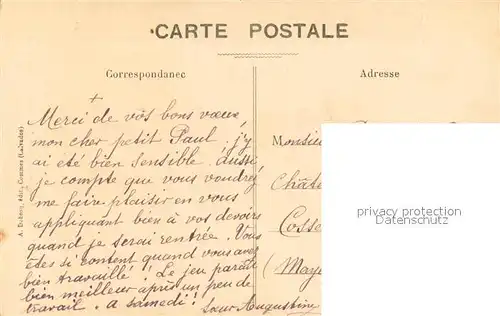 CARTE POSTALE
Correspondance
Adresse
+
Merci de vos bons voeux,
mon cher petit Paul. j'y
ai eté bien sensible. aussi
je compte que vous voudrez
me faire plaisir en vous
appliquant bien à vos devoirs
quand je serai rentrée. Vous
êtes si content quand vous avez
bien travaillé! Le jeu paraît
bien meilleur après un peu de
travail. a samedi!
Sœur Augustine
Monsieu
Châte
Cosse
(May
privacy protection
(Calvados)